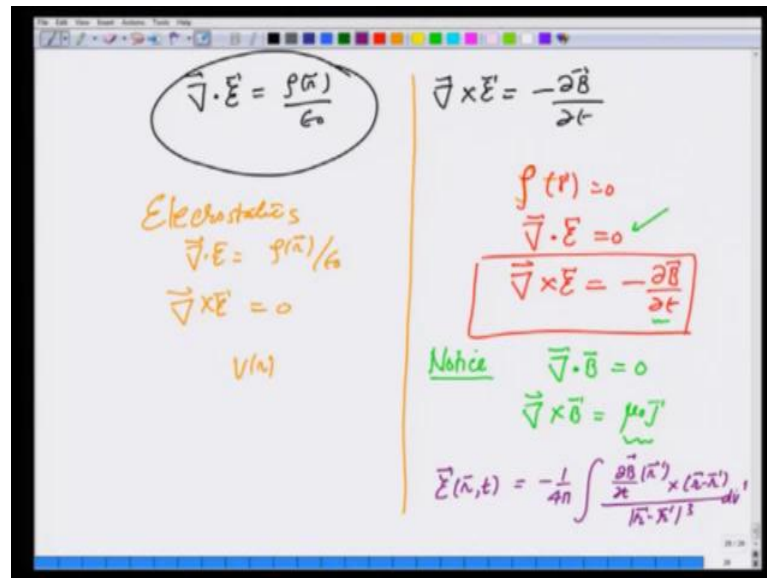 File Edit View Insert Actions Tools Help
∇⃗·E⃗ = ρ(r⃗)/ε₀
Electrostatics
∇⃗·E⃗ = ρ(r⃗)/ε₀
∇⃗×E⃗ = 0
V(r)
∇⃗×E⃗ = −∂B⃗/∂t
ρ(r) = 0
∇⃗·E⃗ = 0 ✓
∇⃗×E⃗ = −∂B⃗/∂t
Notice ∇⃗·B⃗ = 0
∇⃗×B⃗ = μ₀J⃗
E⃗(r⃗,t) = −1/4π ∫ ∂B⃗/∂t (r⃗') × (r⃗−r⃗') / |r⃗−r⃗'|³ dv'